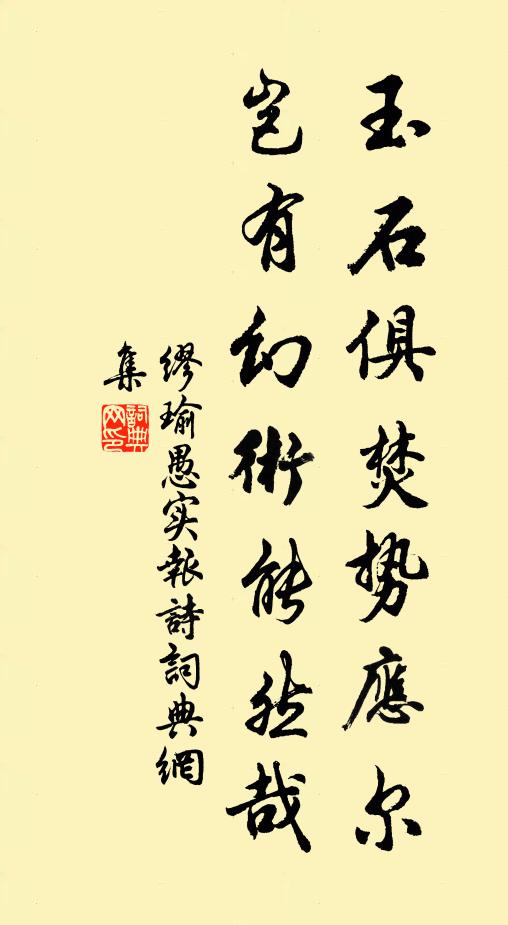 玉石俱焚势應尔
岂有幻術能然哉
缪瑜愚实報詩詞典網
集
詞典
网印